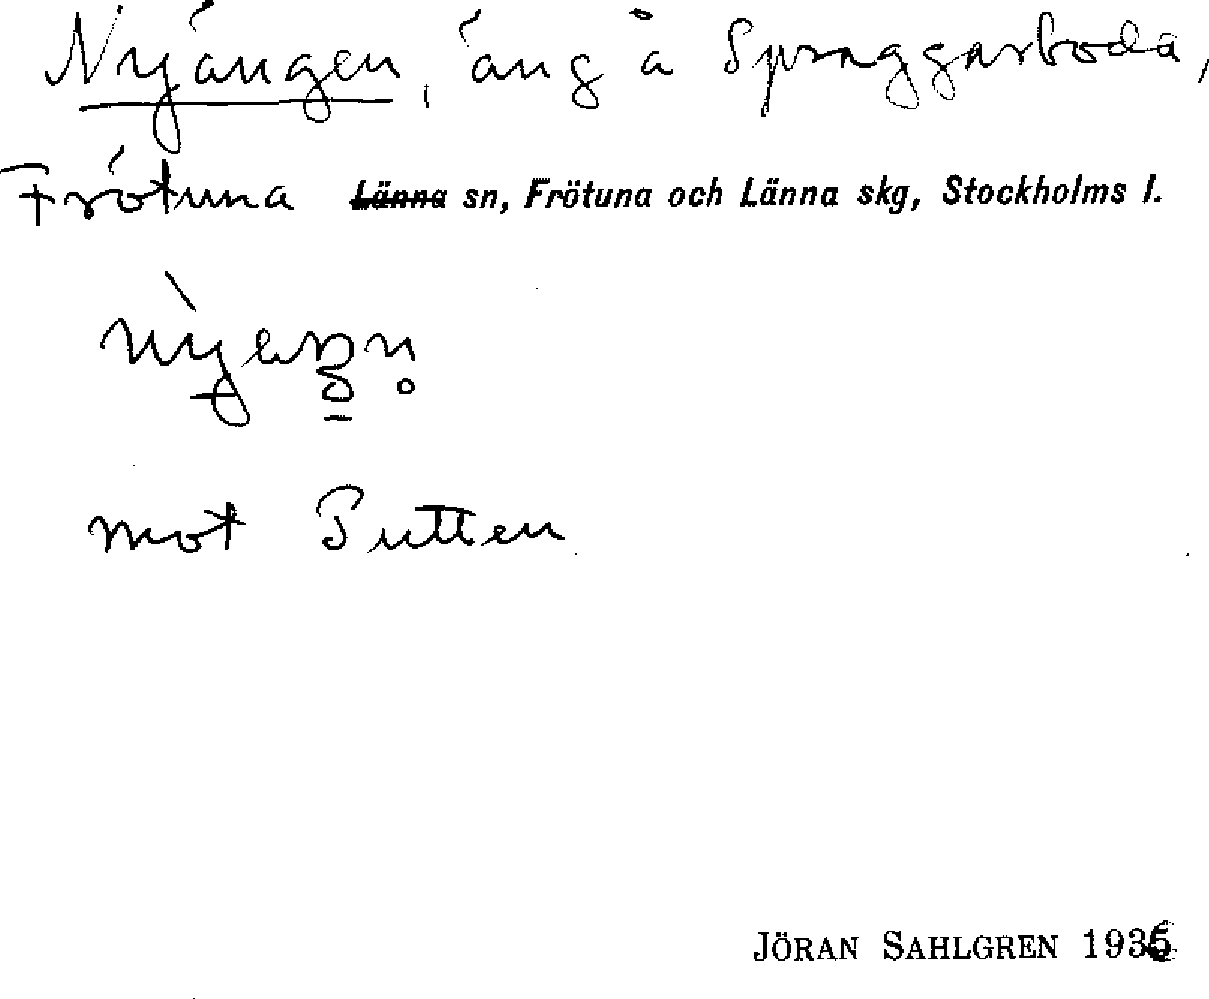 Nyängen, äng å Spraggarboda,
Frötuna Länna sn, Frötuna och Länna skg, Stockholms l.
mot Sutten
JÖRAN SAHLGREN 1936